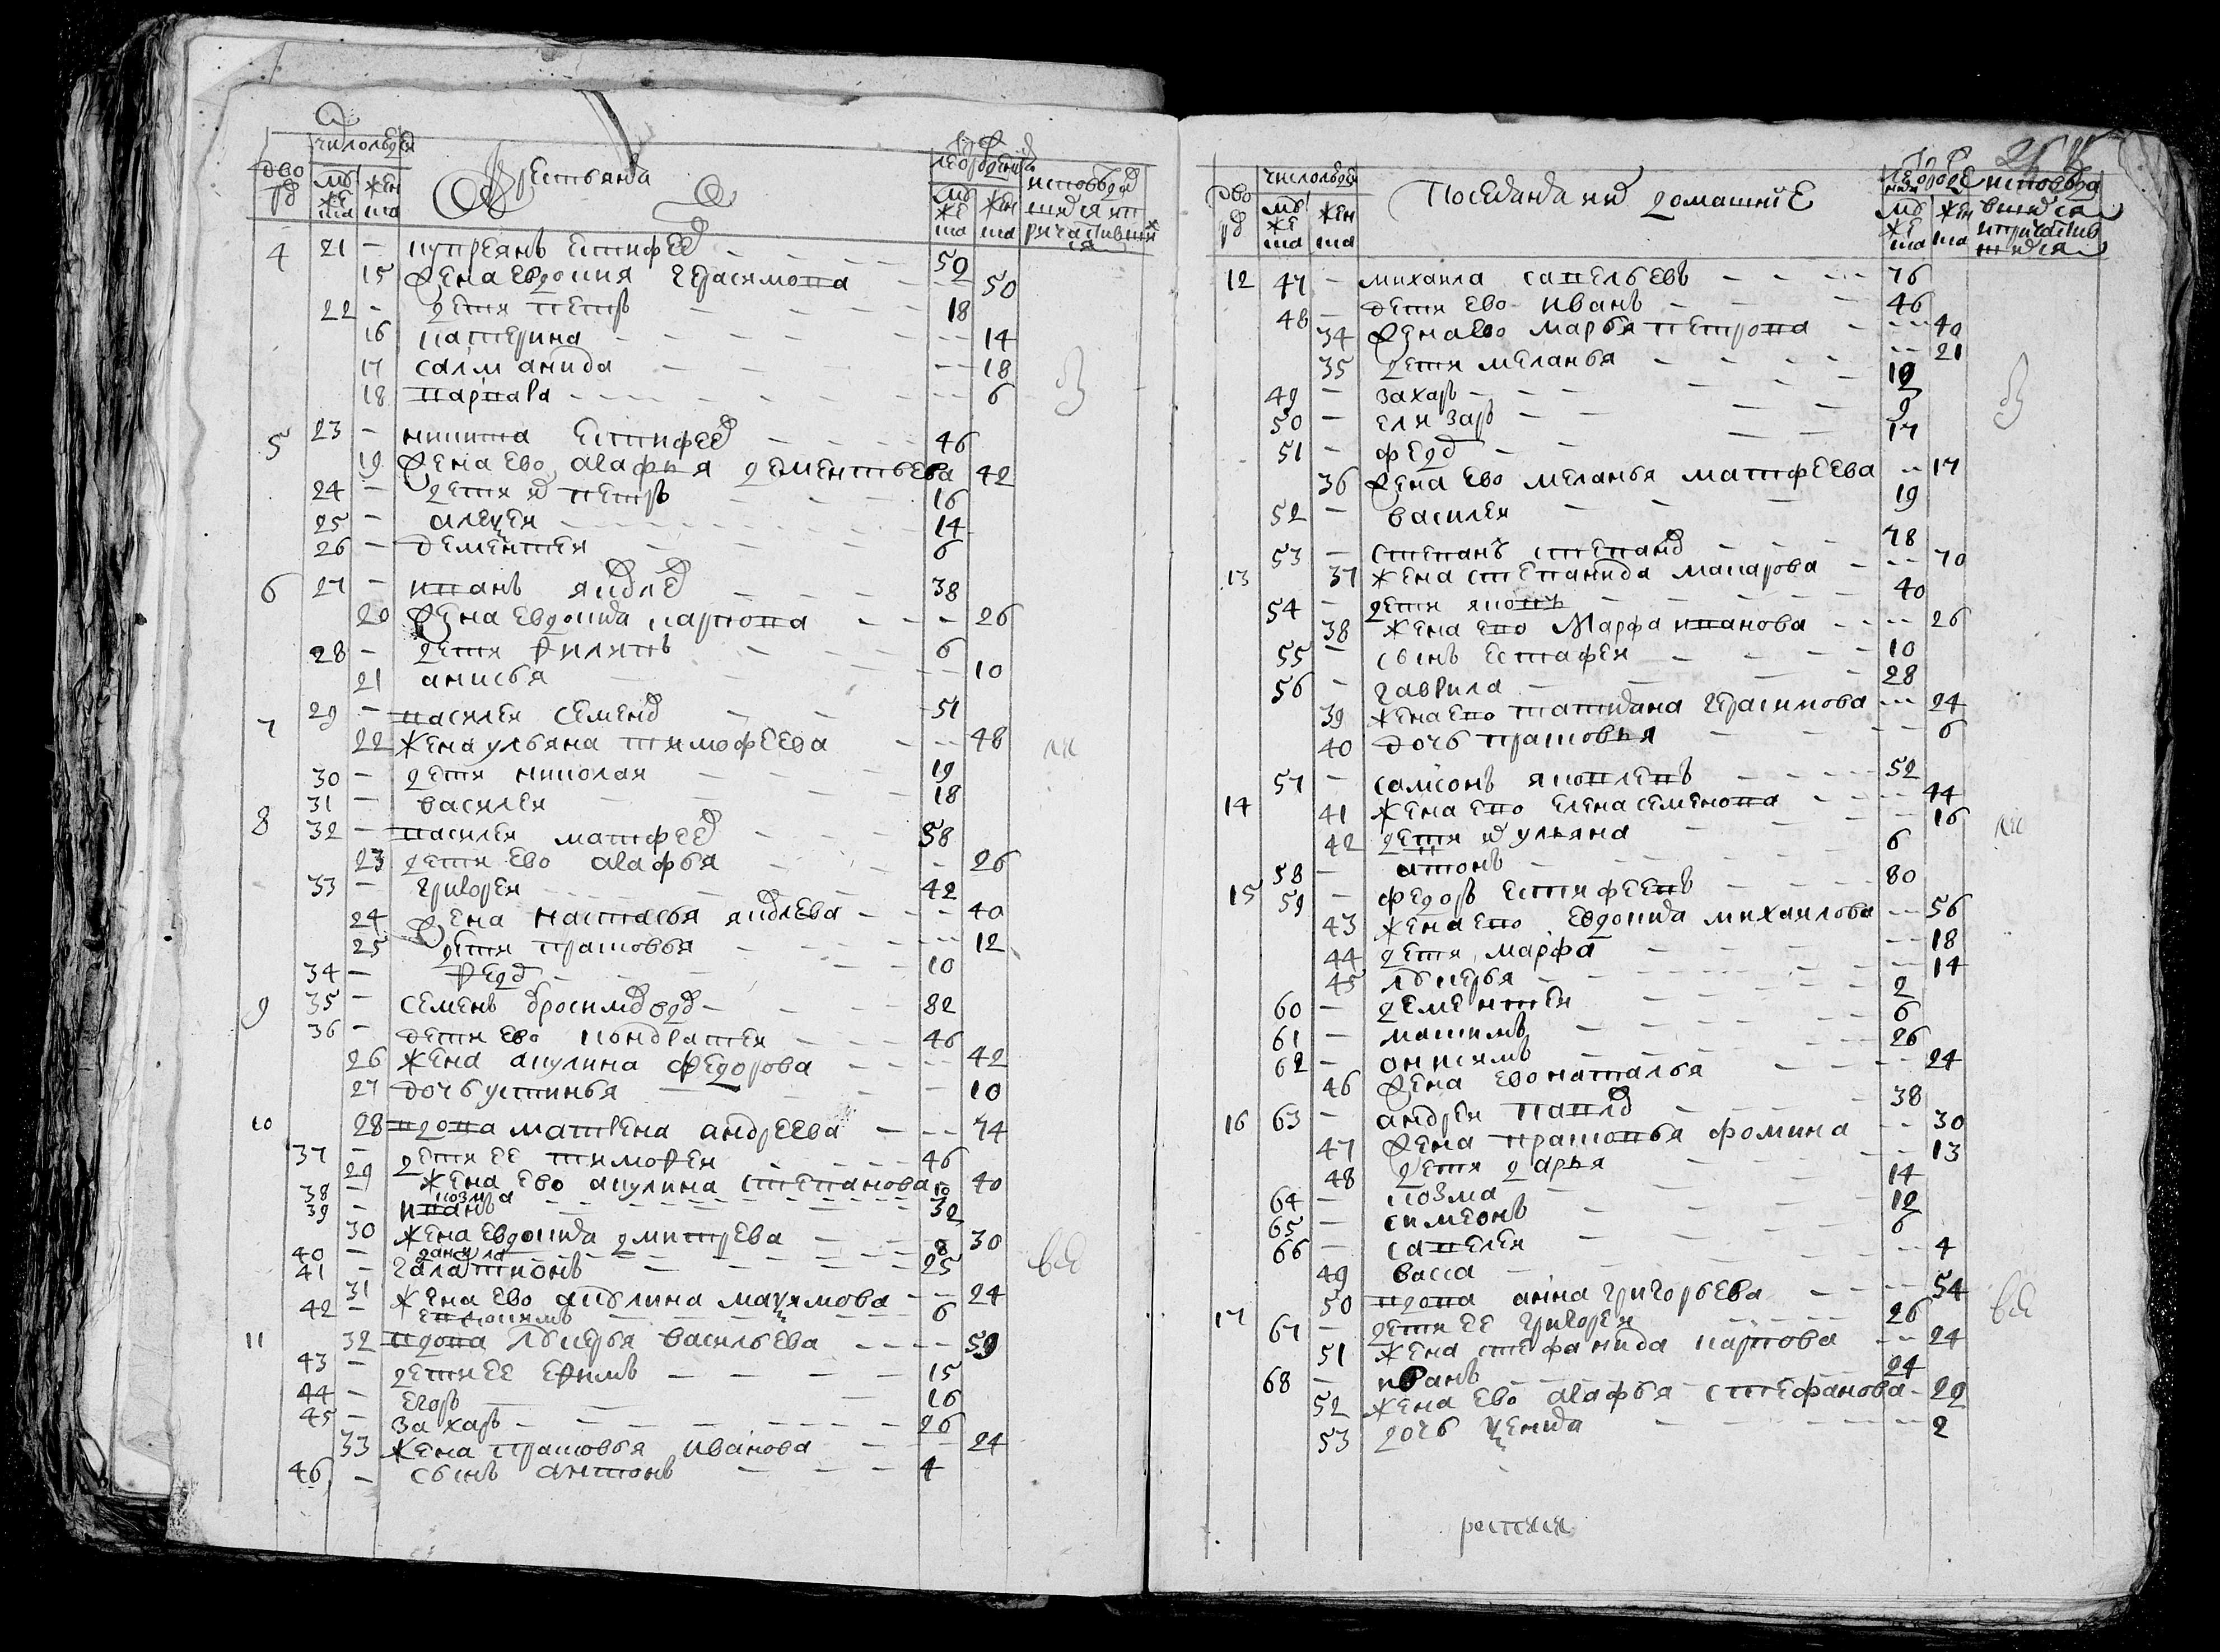 число людеи
дво ры
муже ска
жен ска
Крестьяня
лета от рождения
муже ска
жен ска
исповедыв шияся и п ричастившия ся
4 21 — куприянъ естифее — — — 52
15 жена евдокия герасимова — — 50
22 — дети петръ — — — 18
16 катерина — — — 14
17 саломанида — — — 18
18 варвара — — — 6
5 23 — никита естифее — — — 46
19 жена ево агафия дементьева 42
24 — дети их петръ — — — 16
25 — алеѯеи — — — 14
26 — дементеи — — — 6
6 27 — иванъ яковле — — — 38
20 жена евдокия карпова — — — 26
28 — дети филипъ — — — 6
21 анисья — — — 10
7 29 — василеи семено — — 51
22 жена ульяна тимофеева — — 48
30 — дети николаи — — — 19
31 — василеи — — — 18
8 32 — василеи матфее — — — 58
23 дети ево агафья — — — 26
33 — григореи — — — 42
24 жена настасья яковлева — — — 40
25 дети прасковья — — — 12
34 — федо — — — 10
9 35 — семенъ — — 82
36 — дети ево кондратеи — — — 46
26 жена акулина федорова — — — 42
27 дочь устинья — — — 10
10 28 вдова матрена андреева — — — 74
37 — дети ее тимофеи — — — 46
29 жена ево акулина степанова 40
38 — козма — — — 10
39 — иванъ — — — 32
30 жена евдокия дмитрева — — — 30
40 — данила — — — 8
41 — галатионъ — — — 25
31 жена ево акулина маѯимова — — 24
42 — — — — 6
11 32 вдова лукерья васильева — — — — 59
43 — дети ее ефимъ — — — — 15
44 — егоръ — — 16
45 — захаръ — — — — 26
33 жена прасковья иванова — — 24
46 — сынъ антонъ — — — 4
дво ры
число людеи
муже ска
жен ска
Посацкия их домашние
лета от рожде ния
муже ска
жен ска
исповеды вшияся и причастив шияся
12 47 — михаила савельевъ — — — — 76
48 — дети ево иванъ — — — 46
34 жена ево марья петрова — — — 40
35 дети меланья — — — — 21
49 — захаръ — — — 12
50 — елизаръ — — — 9
51 — федо — — 17
36 жена ево меланья матфеева — 17
52 — василеи — — — 19
13 53 — степанъ степано — — — 78
37 жена степанида макарова — — — 70
54 — дети яковъ — — — 40
38 жена ево марфа иванова — — — 26
55 — сынъ естафеи — — — 10
56 — гаврила — — — 28
39 жена ево татияна герасимова — — 24
40 дочь прасковья — — — 6
14 57 — самсонъ яковлевъ — — — 52
41 жена ево елена семенова — — — 44
42 дети их ульяна — — — 16
58 — антонъ — — — 6
15 59 — федоръ естифеевъ — — — 80
43 жена ево евдокия михаилова — — 56
44 дети марфа — — — 18
45 лукерья — — — 14
60 — дементеи — — — 2
61 — макимъ — — — 6
62 — онисимъ — — — 26
46 жена ево наталья — — — 24
16 63 — андреи павло — — — 38
47 жена прасковья фомина — — 30
48 дети дарья — — — 13
64 — козма — — — 14
65 — симеонъ — — — 12
66 — савелеи — — — 6
49 васса — — — 4
17 50 вдова анна григорьева — — — 54
67 — дети ее григореи — — — 26
51 жена стефанида карпова — — 24
68 — иванъ — — — 24
52 жена ево агафья стефанова — 22
53 дочь ѯения — — — 2